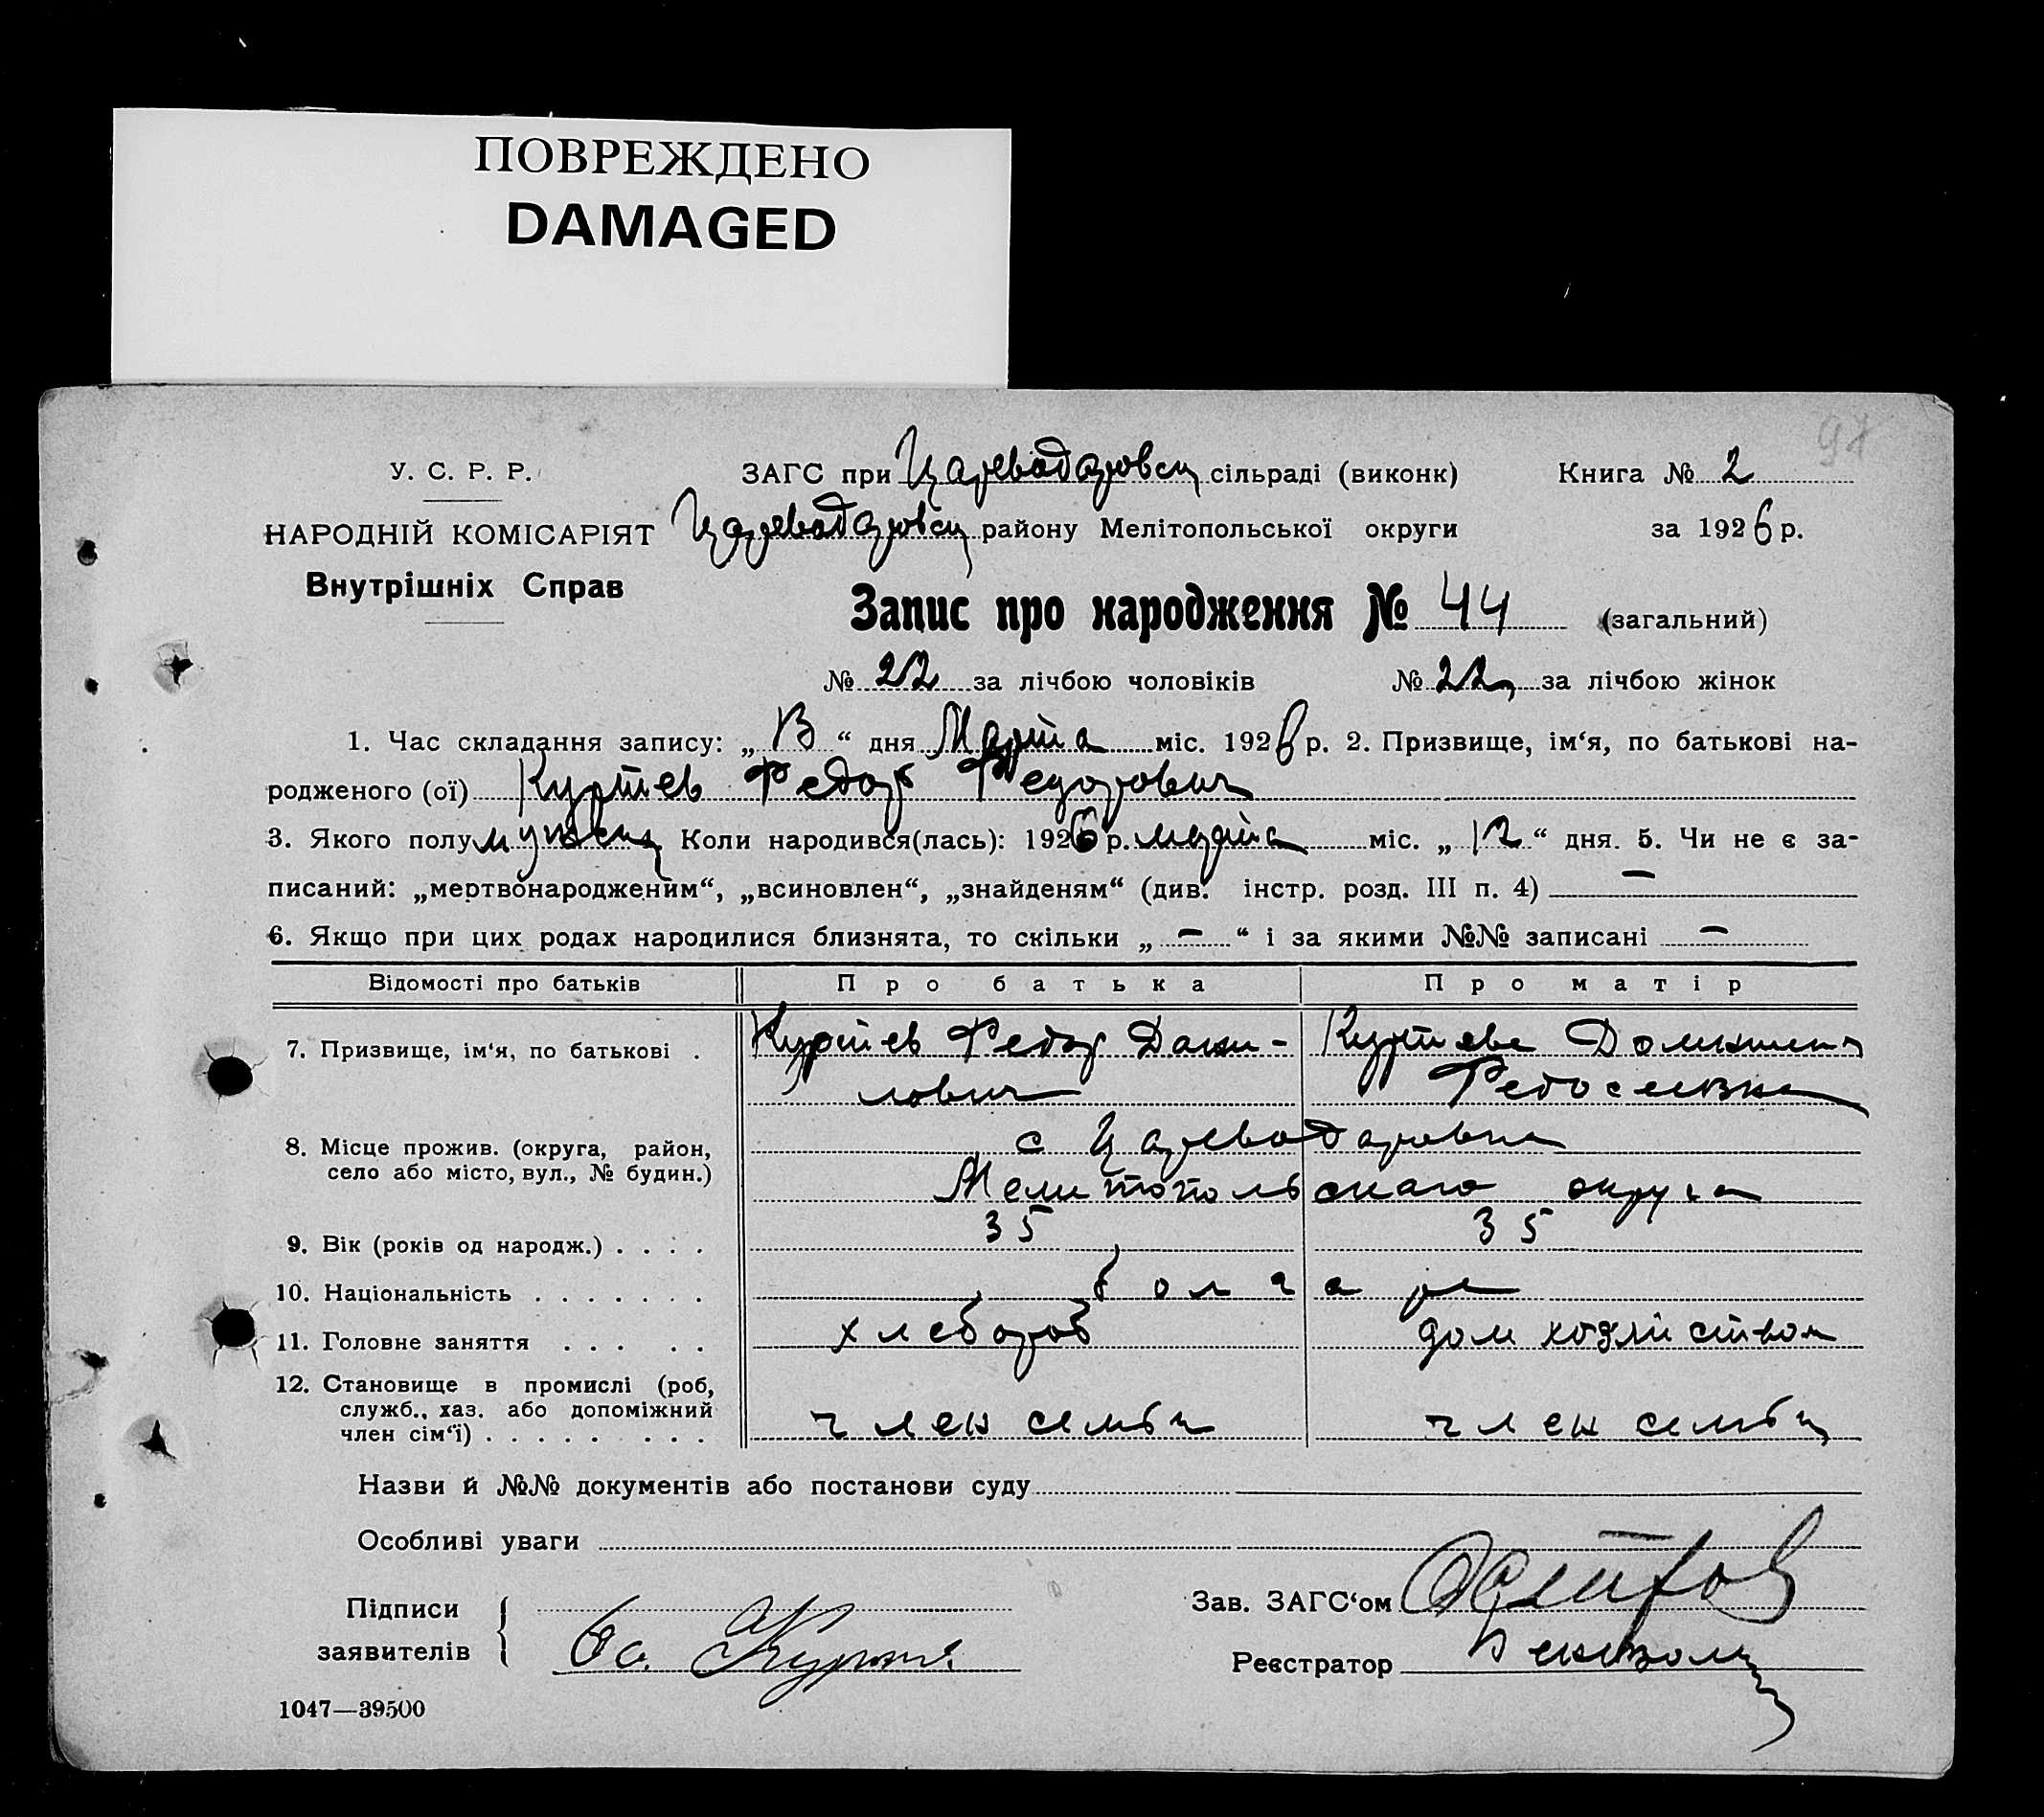 ПОВРЕЖДЕНО
DAMAGED
97
У. С. Р. Р.
ЗАГС при Цареводаровск сільраді (виконк)
Книга № 2
НАРОДНІЙ КОМІСАРІЯТ
Цареводаровск району Мелітопольської округи
за 1926 р.
Внутрішніх Справ
Запис про народження № 44 (загальний)
№ 22 за лічбою чоловіків № 22 за лічбою жінок
1. Час складання запису: „ 13 “ дня Марта міс. 1926 р. 2. Призвище, ім‘я, по батькові на-
родженого (ої) Куртев Федор Федорович
3. Якого полу мужск Коли народився(лась): 1926 р. марта міс. „ 12 “ дня. 5. Чи не є за-
писаний: „мертвонародженим“, „всиновлен“, „знайденям“ (див. інстр. розд. III п. 4) —
6. Якщо при цих родах народилися близнята, то скільки „ — “ і за якими №№ записані —
Відомості про батьків
Про батька
Про матір
7. Призвище, ім‘я, по батькові .
Куртев Федор Дани-
лович
Куртева Домникия
Федосеевна
8. Місце прожив. (округа, район,
село або місто, вул., № будин.)
с Цареводаровка
Мелитопольскаго округа
9. Вік (років од народж.) . . . .
35
35
10. Національність . . . . . . .
болгаре
11. Головне заняття . . . . .
хлебороб
дом хозяйством
12. Становище в промислі (роб,
служб., хаз. або допоміжний
член сім‘ї) . . . . . . . .
член семьи
член семьи
Назви й №№ документів або постанови суду
Особливі уваги
Підписи
заявителів
Зав. ЗАГС‘ом
Реєстратор
1047—39500